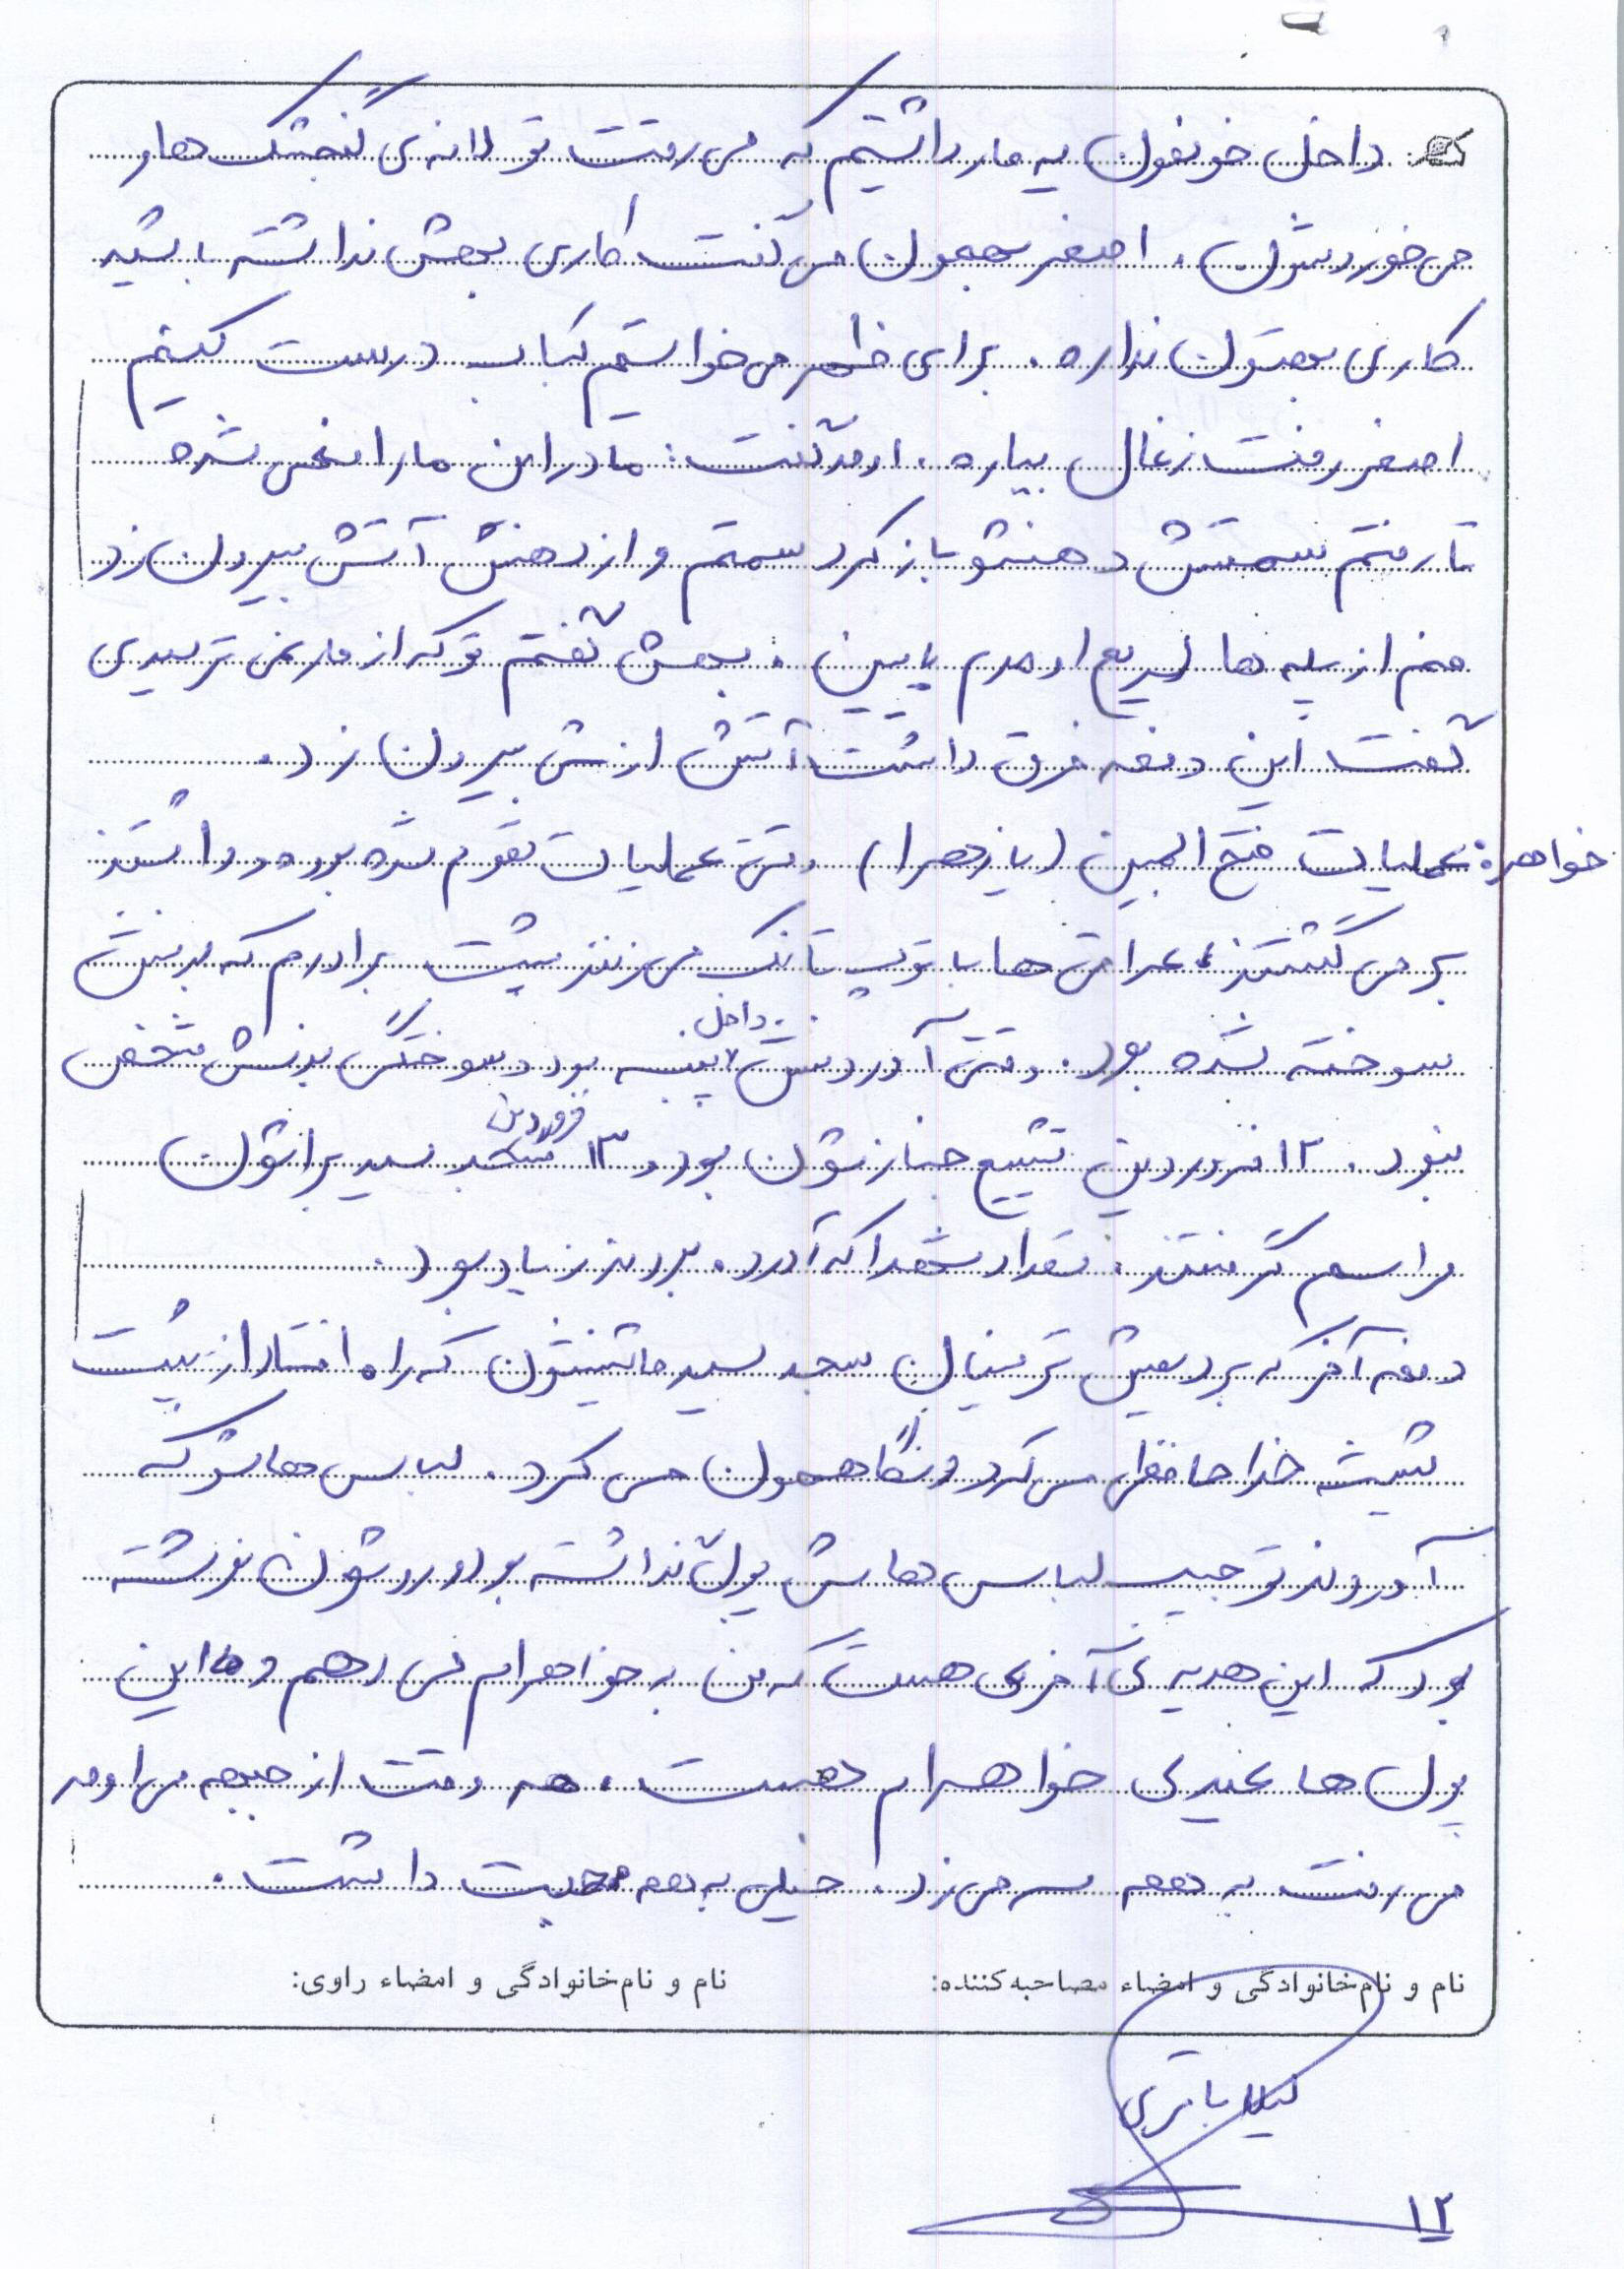 داخل خونمون یه مار داشتیم که می رفت تو لانه ی گنجشک ها و
می خوردشون. اصغر بهمون می گفت کاری بهش نداشته باشید
کاری بهتون نداره. برای ظهر می خواستیم کباب درست کنیم
اصغر رفت زغال بیاره. اومد گفت: مادر این مارا شده
تا رفتم سمتش دهنشو باز کرد سمتم و از دهنش آتش بیرون زد
منم از پله ها سریع اومدم پایین. بهش گفتم تو که از مار نمی ترسیدی
گفت این دفعه فرق داشت آتش ازش بیرون زد.
خواهر: عملیات فتح المبین (یا زهرا) وقتی عملیات تموم شده بوده و داشتند
بر می گشتند، عراقی ها با توپ تانک می زنند پشت برادرم که بدنش
سوخته شده بود. وقتی آوردنش داخل پنبه بود و سوختگی بدنش مشخص
نبود. ۱۲ فروردین تشییع جنازشون بود و ۱۳ فروردین مسجد سید براشون
مراسم گرفتند. تعداد شهدا که آورده بودند زیاد بود.
دفعه آخر که بردیمش ترمینال مسجد سید ماشینشون که راه افتاد از پشت
شیشه خداحافظی می کرد و نگاهمون می کرد. لباس هاشو که
آوردند تو جیب لباس هاش پول نداشته بود و روشون نوشته
بود که این هدیه ی آخری هست که من به خواهرام می دهم و این
پول ها عیدی خواهرام هست. هر وقت از جبهه می اومد
می رفت به همه سر می زد. خیلی به همه محبت داشت.
نام و نام‌خانوادگی و امضاء مصاحبه‌کننده: نام و نام‌خانوادگی و امضاء راوی:
لیلا باقری
۱۲